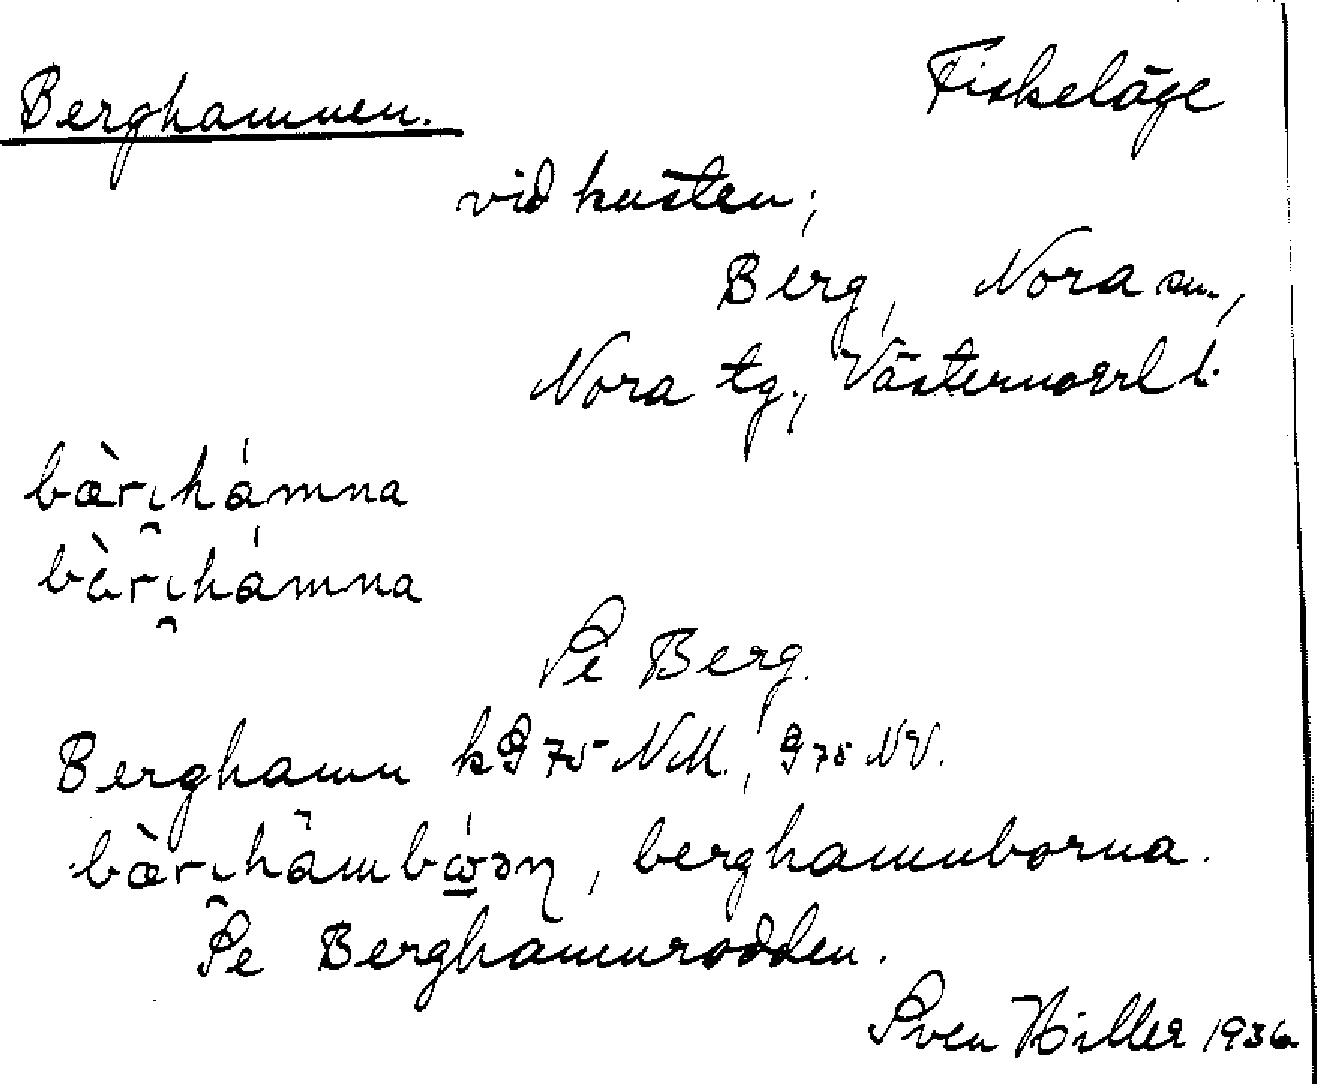 Berghamnen. Fiskeläge
vid kusten;
Berg, Nora sn.,
Nora tg., Västernorrl l.
bæ̀rɩhámna
bàrɩhámna
Se Berg.
Berghamn kG 75 NM., G 75 NV.
berghamnborna.
Se Berghamnrodden.
Sven Hiller 1936.